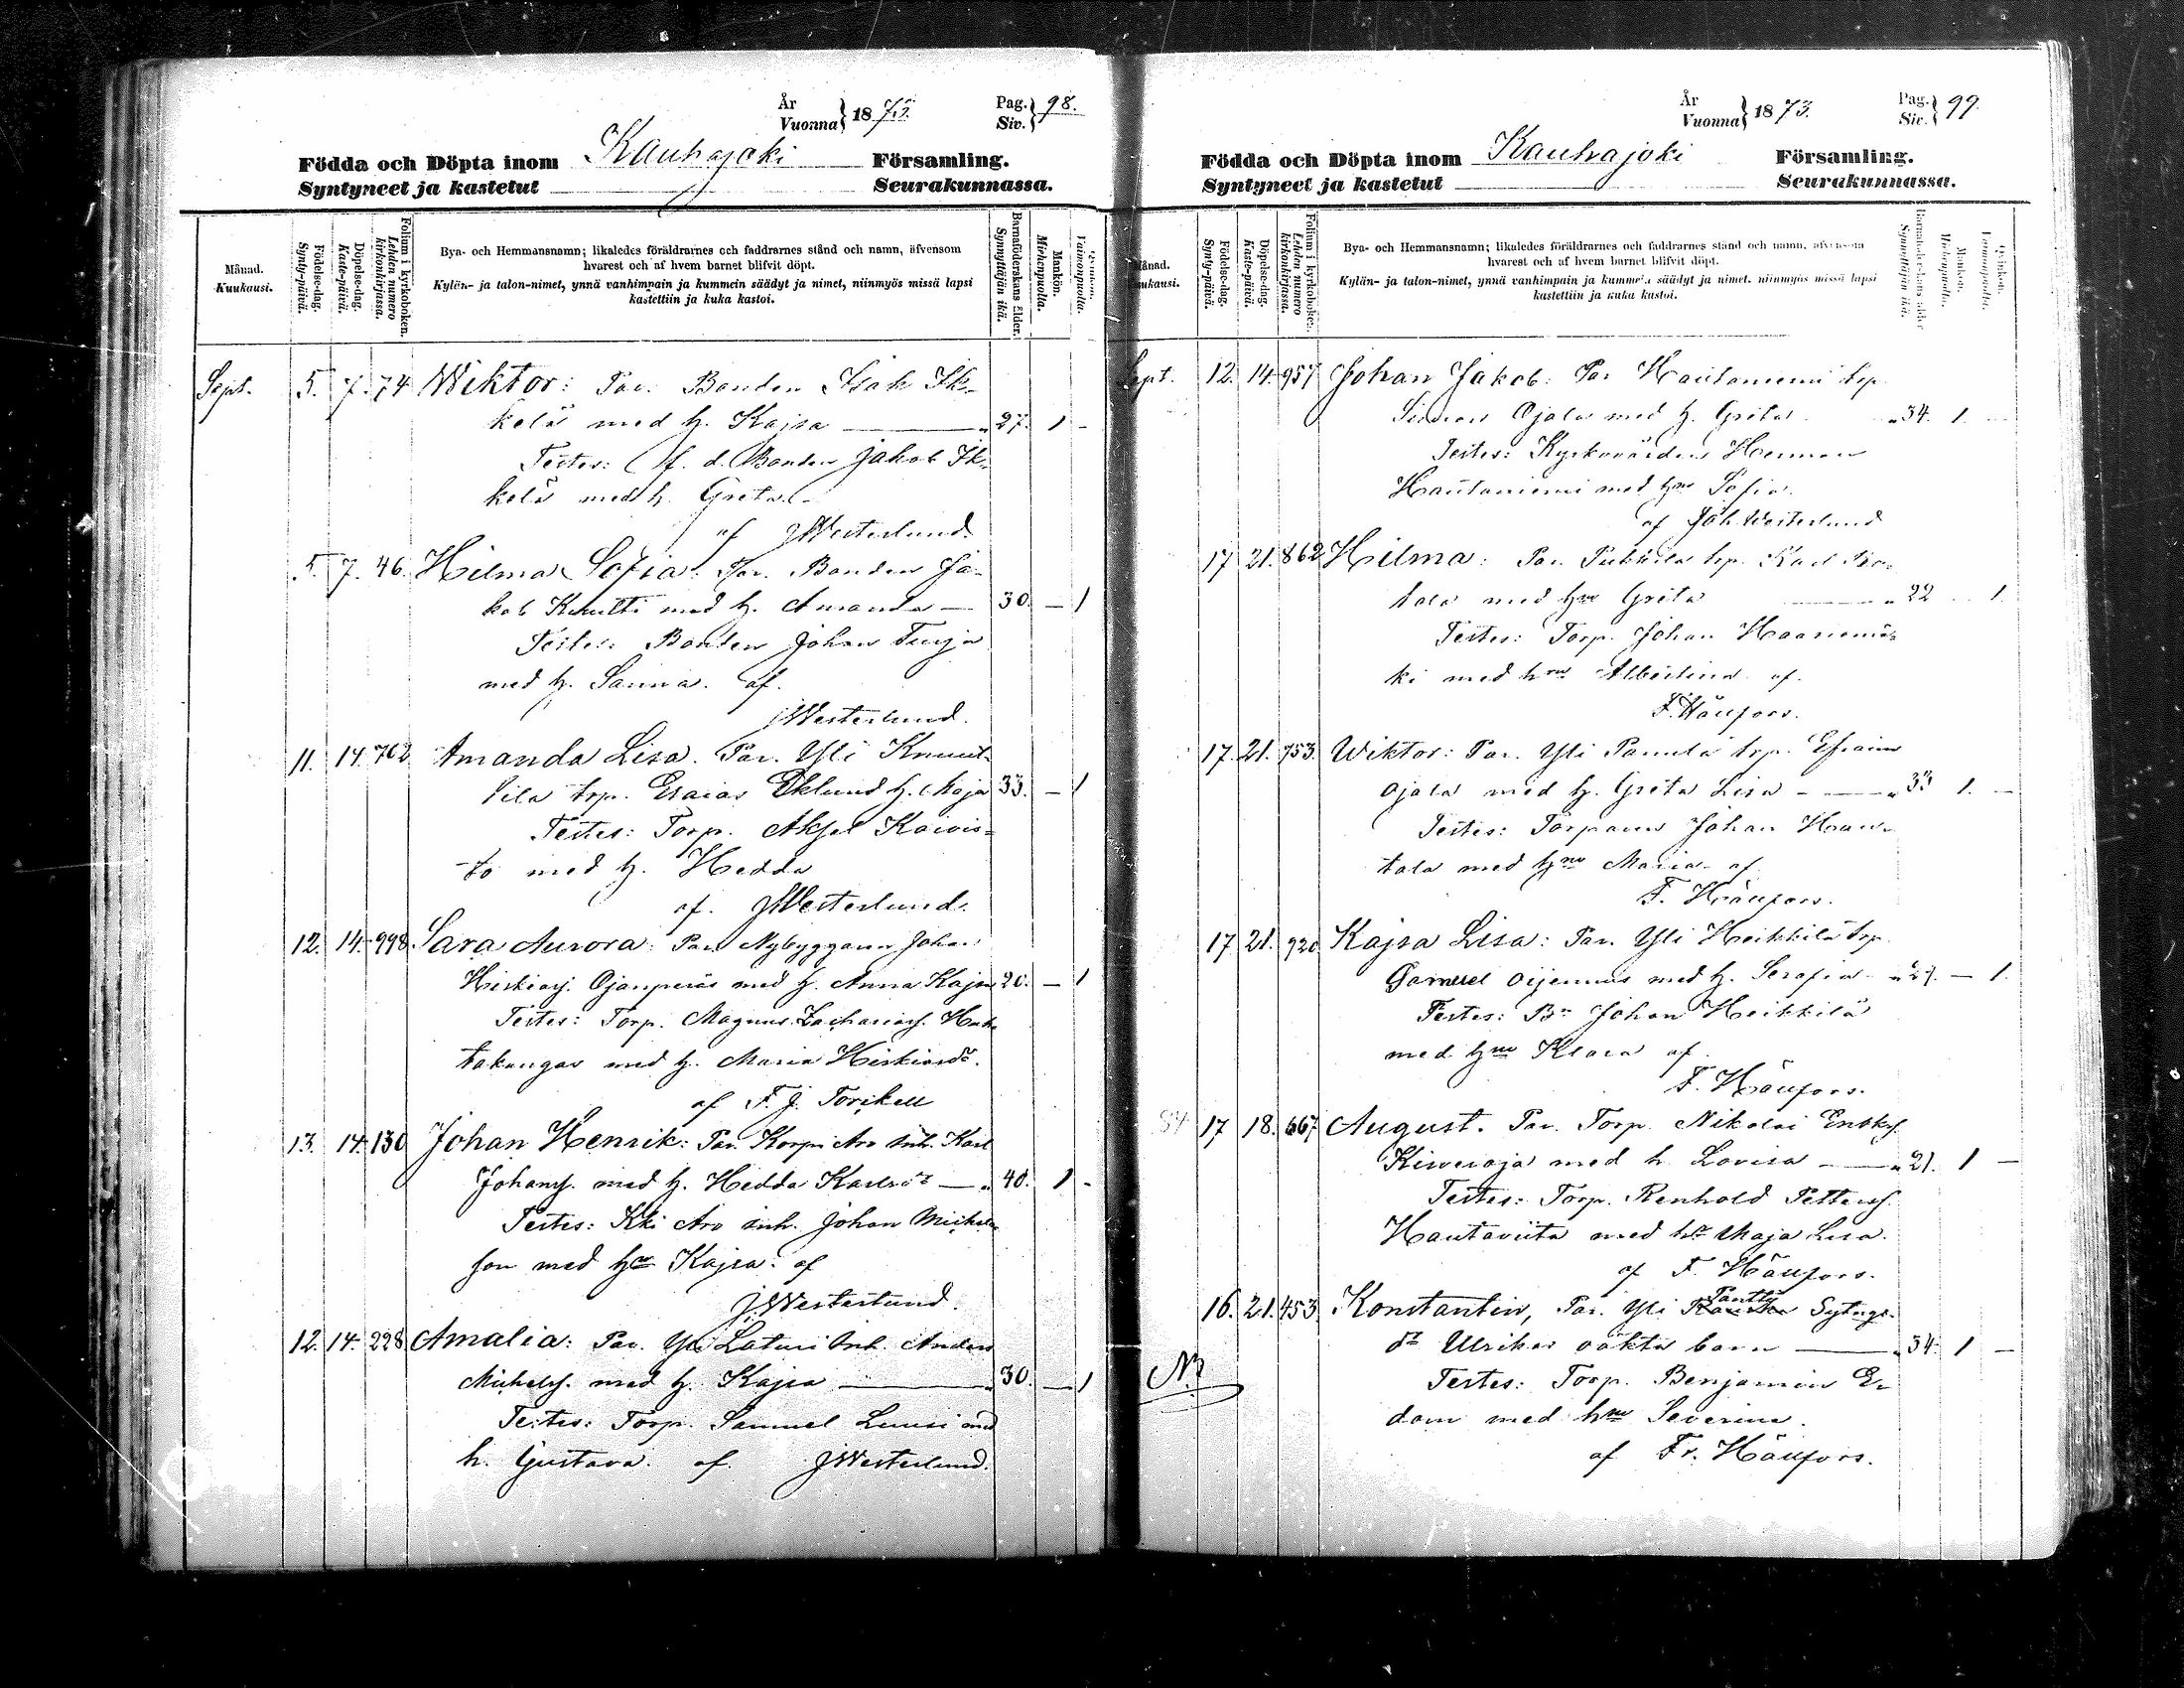 År
Vuonna } 1873. Pag.
Siv. } 98.
Födda och Döpta inom Kauhajoki Församling.
Syntyneet ja kastetut Seurakunnassa.
Månad.
Kuukausi.
Födelse-dag.
Synty-päivä.
Döpelse-dag.
Kaste-päivä.
Folium i kyrkoboken.
Lehden numero kirkonkirjassa.
Bya- och Hemmansnamn; likaledes föräldrarnes och faddrarnes stånd och namn, äfvensom
hvarest och af hvem barnet blifvit döpt.
Kylän- ja talon-nimet, ynnä vanhimpain ja kummein säädyt ja nimet, niinmyös missä lapsi
kastettiin ja kuka kastoi.
Barnaföderskans ålder.
Synnyttäjän ikä.
Mankön.
Miehenpuolta.
Qvinkön.
Vaimonpuolta.
Sept. 5. 7. 74 Wiktor: Par. Bonden Isak Ik-
kelä med h. Kajsa — 27. 1 -
Testes: f. d. Bonden Jakob Ik-
kelä med h. Greta
af JWesterlund.
5. 7. 46. Hilma Sofia: Par. Bonden Ja-
kob Knutti med h. Amanda — 30. — 1
Testes: Bonden Johan Turja
med h. Sanna. af
JWesterlund.
11. 14. 762 Amanda Lisa. Par. Yli Knuut-
tila trp. Esaias Eklund h. Maja 33. — 1
Testes: Torp. Aksel Koivis-
to med h. Hedda
af. JWesterlund.
12. 14. 998. Sara Aurora: Par. Nybyggaren Johan
Hiskiasj. Ojanperäs med h. Anna Kajsa 20. — 1
Testes: Torp. Magnus Zachariasj.
takangas med h. Maria Hiskiasdr.
af F. J. Torckell
13. 14. 130 Johan Henrik: Par. Korpi Aro inh. Karl
Johansj. med h. Hedda Karlsdr — 40. 1 -
Testes: Kki Aro inh. Johan Michels-
son med hu Kajsa. af
JWesterlund.
12. 14. 228 Amalia: Par. Yli Laturi Inh. Anders
Michelsj. med h. Kajsa — 30. — 1
Testes: Torp. Samuel Luusi med
h. Gustava. af JWesterlund.
År
Vuonna } 1873. Pag.
Siv. } 99.
Födda och Döpta inom Kauhajoki Församling.
Syntyneet ja kastetut Seurakunnassa.
Månad.
Kuukausi.
Födelse-dag.
Synty-päivä.
Döpelse-dag.
Kaste-päivä.
Folium i kyrkoboken.
Lehden numero kirkonkirjassa.
Bya- och Hemmansnamn; likaledes föräldrarnes och faddrarnes stånd och namn, äfvensom
hvarest och af hvem barnet blifvit döpt.
Kylän- ja talon-nimet, ynnä vanhimpain ja kummein säädyt ja nimet, niinmyös missä lapsi
kastettiin ja kuka kastoi.
Barnaföderskans ålder.
Synnyttäjän ikä.
Mankön.
Miehenpuolta.
Qvinkön.
Vaimonpuolta.
Sept. 12. 14. 957 Johan Jakob: Par Hautaniemi trp.
Simon Ojala med h. Greta 34. 1. —
Testes: Kyrkovärden Herman
Hautaniemi med hru Sofia.
af Joh. Westerlund
17 21. 862 Hilma: Par. Pukkila trp. Karl
tala med hru Greta — 22 1.
Testes: Torp. Johan Haanemä-
ki med hru Albertina af.
F. Häufors.
17. 21. 753. Wiktor: Par. Yli Panula trp. Efraim
Ojala med h. Greta Lisa — 33 1. —
Testes: Torparen Johan Hau-
tala med hru Maria af
F. Häufors.
17 21. 920 Kajsa Lisa: Par. Yli Heikkilä trp.
Gamuel Oijennus med h. Serafia 27. — 1.
Testes: Bn Johan Heikkilä
med hru Klara af
F. Häufors.
17 18. 667 August. Par. Torp. Nikolai
Kiweroja med h. Lovisa — 21. 1 —
Testes: Torp. Renhold Pettersj.
Hautaviita med hr Maja Lisa.
af F. Häufors.
16. 21. 453 Konstantin, Par. Yli Pantti Sytngs
dr Ulrikas oäkta barn — 34. 1 —
NB
Testes: Torp. Benjamin E-
dom med hru Severina.
af Fr. Häufors.